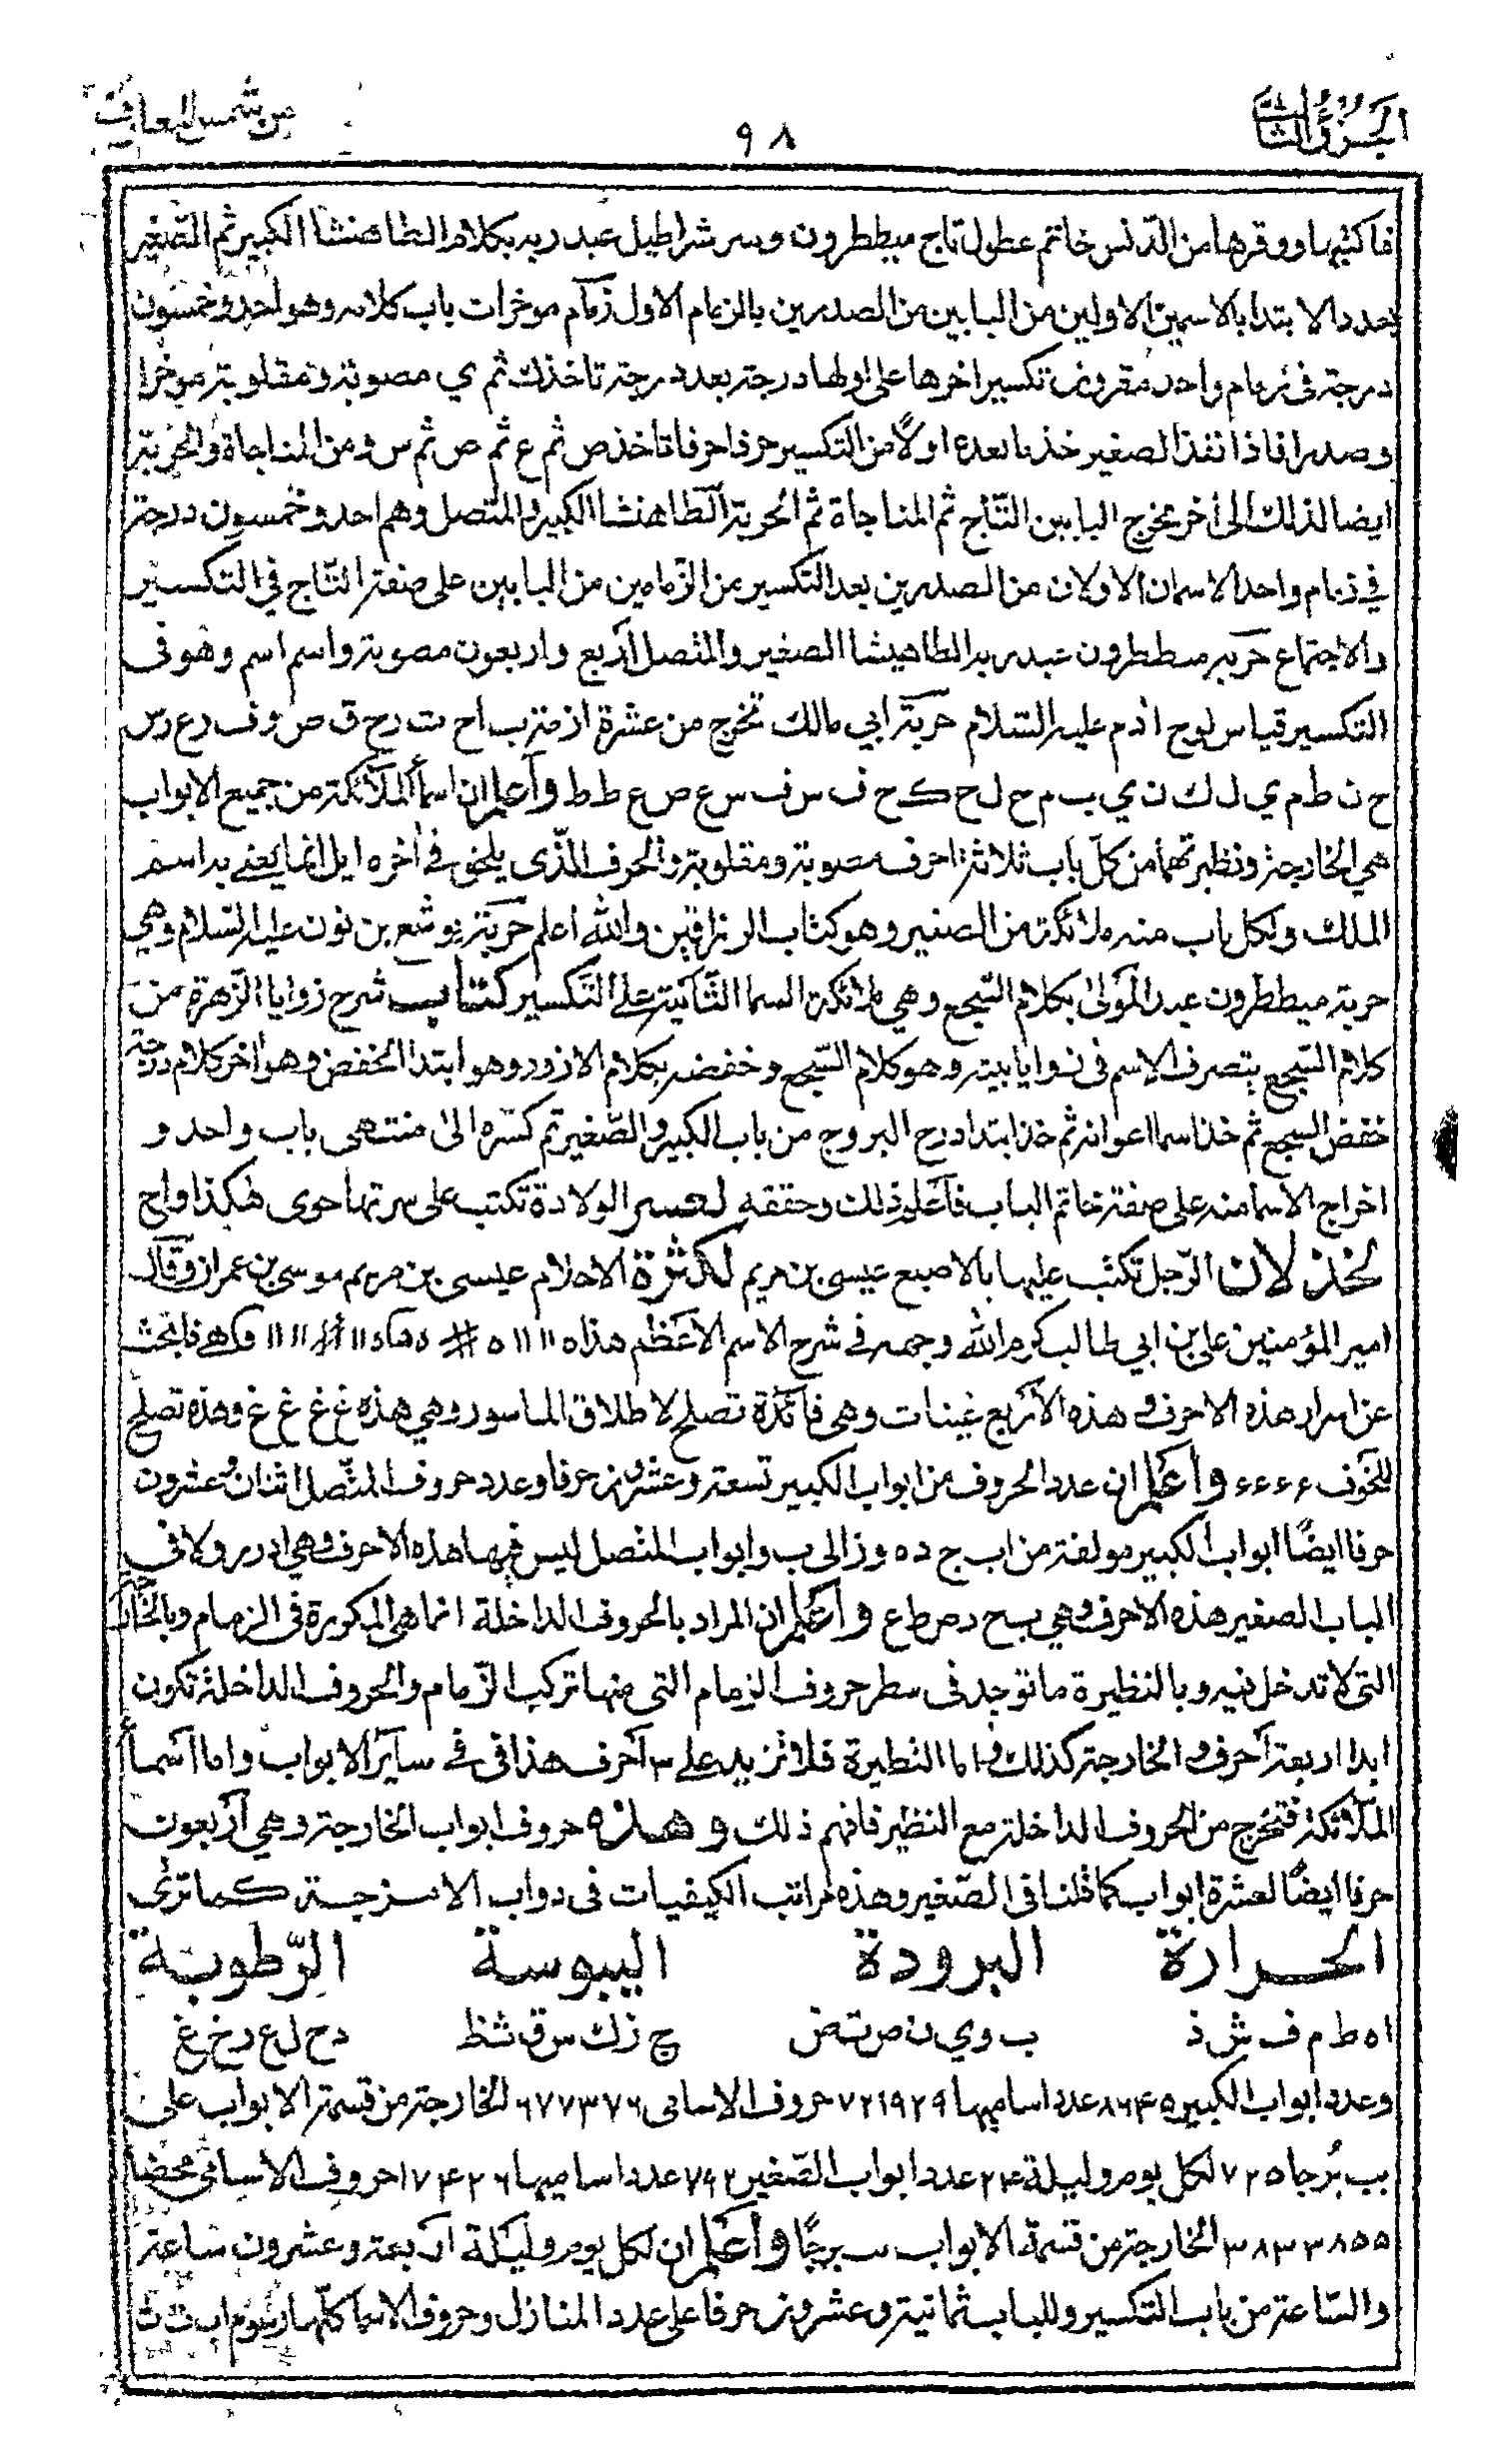 الجزؤ الثالث
٩٨
من شمس المعارف
فاكتبها ووقرها من الدنس خاتم عطول تاج ميططرون وسر شراطيل عبد ربه بكلام الطاهنشا الكبير ثم الصغير
بعدد الابتدا بالاسمين الاولين من البابين من الصدرين بالزمام الاول زمام موخرات باب كلامه وهو احد وخمسون
درجة في زمام واحد مقرون تكسير اخرها على اولها درجة بعد درجة تاخذك ثم ي مصوبة ومقلوبة موخرا
وصدرا فاذا نفذ الصغير خذ ما بعده اولاً من التكسير حرفا حرفا تاخذ ص ثم ع ثم ص ثم س ومن المناجاة والحربة
ايضا لذلك الى اخر مخرج البابين التاج ثم المناجاة ثم الحربة الطاهنشا الكبير والمتصل وهم احد وخمسون درجة
في زمام واحد الاسمان الاولان من الصدرين بعد التكسير من الزمامين من البابين على صفة التاج في التكسير
والاجتماع حربه مططرون عبد ربه الطاهيشا الصغير والمتصل اربع واربعون مصوبة واسم اسم وهو في
التكسير قياس لوح ادم عليه السلام حربة ابي مالك تخرج من عشرة ازمنة ب اح ت رح ق ص وف رع رس
ح ن ط م ي ل ك ن ي ب م ح ل ح ك ح ف س ف س ع ص ع ط ط واعلم ان اسما الملائكة من جميع الابواب
هي الخارجة ونظيرتها من كل باب ثلاثة احرف مصوبة ومقلوبة والحرف الذي يلحق في اخره ايل انما يعني به اسم
الملك ولكل باب منه ملائكة من الصغير وهو كتاب الرزاقين والله اعلم حربة يوشع بن نون عليه السلام وهي
حربة ميططرون عبد المولى بكلام التبجح وهي ملائكة السما الثانية على التكسير كتاب شرح زوايا الزهرة من
كلام التبجح بتصرف الاسم في زوايا بيته وهو كلام التبجح وخفضه بكلام الازور وهو ابتدا الخفض وهو اخر كلام درجة
خفض التبجح ثم خذ اسما اعوانه ثم خذ ابتدا درج البروج من باب الكبير والصغير ثم كسره الى منتهى باب واحد و
اخراج الاسما منه على صفة خاتم الباب فاعلم ذلك وحققه لعسر الولادة تكتب على سرتها حوى هكذا واح
لخذلان الرجل تكتب عليها بالاصبع عيسى بن مريم لكثرة الاحلام عيسى بن مريم موسى بن عمران وقال
امير المؤمنين علي بن ابي طالب كرم الله وجهه في شرح الاسم الاعظم هذا فابحث
عن اسرار هذه الاحرف و هذه الاربع غينات وهي فائدة تصلح لاطلاق الماسور وهي هذه غ غ غ غ وهذه تصلح
للخوف ء ء ء ء واعلم ان عدد الحروف من ابواب الكبير تسعة وعشرون حرفا وعدد حروف المتصل اثنان وعشرون
حرفا ايضًا ابواب الكبير مولفة من اب ج د ه و ز الى ب وابواب المتصل ليس فيها هذه الاحرف وهي ا د ر و لا في
الباب الصغير هذه الاحرف وهي ب ح د ص ط ع واعلم ان المراد بالحروف الداخلة انما هي المذكورة في الزمام وبالخارجة
التي لا تدخل فيه وبالنظيرة ما توجد في سطر حروف الزمام التي منها تركب الزمام والحروف الداخلة تكون
ابدا اربعة احرف والخارجة كذلك واما النظيرة فلا تزيد على ٣ احرف هذا في في ساير الابواب واما اسما
الملائكة فتخرج من الحروف الداخلة مع النظير فافهم ذلك وهذه حروف ابواب الخارجة وهي اربعون
حرفا ايضًا لعشرة ابواب كما قلنا في الصغير وهذه مراتب الكيفيات في دواب الامزجة كما ترى
الحرارة البرودة اليبوسة الرطوبة
اه ط م ف ش ذ ب و ي ن ص ت ض ج ز ك س ق ث ظ د ح ل ع ر خ غ
وعدد ابواب الكبير ٨٦٤٥ عدد اساميها ٧٢١٩٢٩ حروف الاسامي ٦٧٧٣٧٦ الخارجة من قسمة الابواب على
يب برجا ٧٢٥ لكل يوم وليلة ٢٤ عدد ابواب الصغير ٧٤٢ عدد اساميها ١٧٤٢٦ حروف الاسامي محضا
٣٨٣٣٨٥٥ الخارجة من قسمة الابواب يب برجًا واعلم ان لكل يوم وليلة اربعة وعشرون ساعة
والساعة من باب التكسير وللباب ثمانية وعشرون حرفا على عدد المنازل وحروف الاسما كلها رسوم اب ت ث